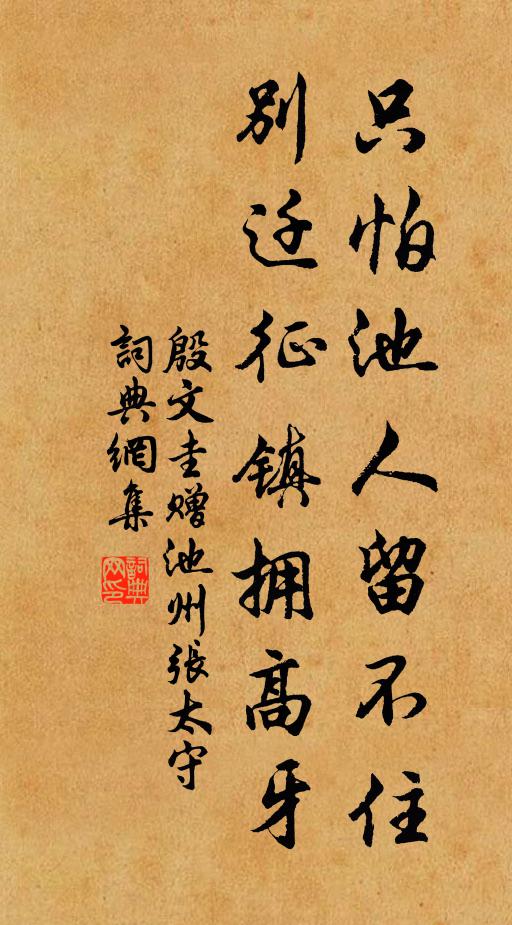 只怕池人留不住
别迁征镇拥高牙
殷文圭赠池州張太守
詞典網集
詞典
网印